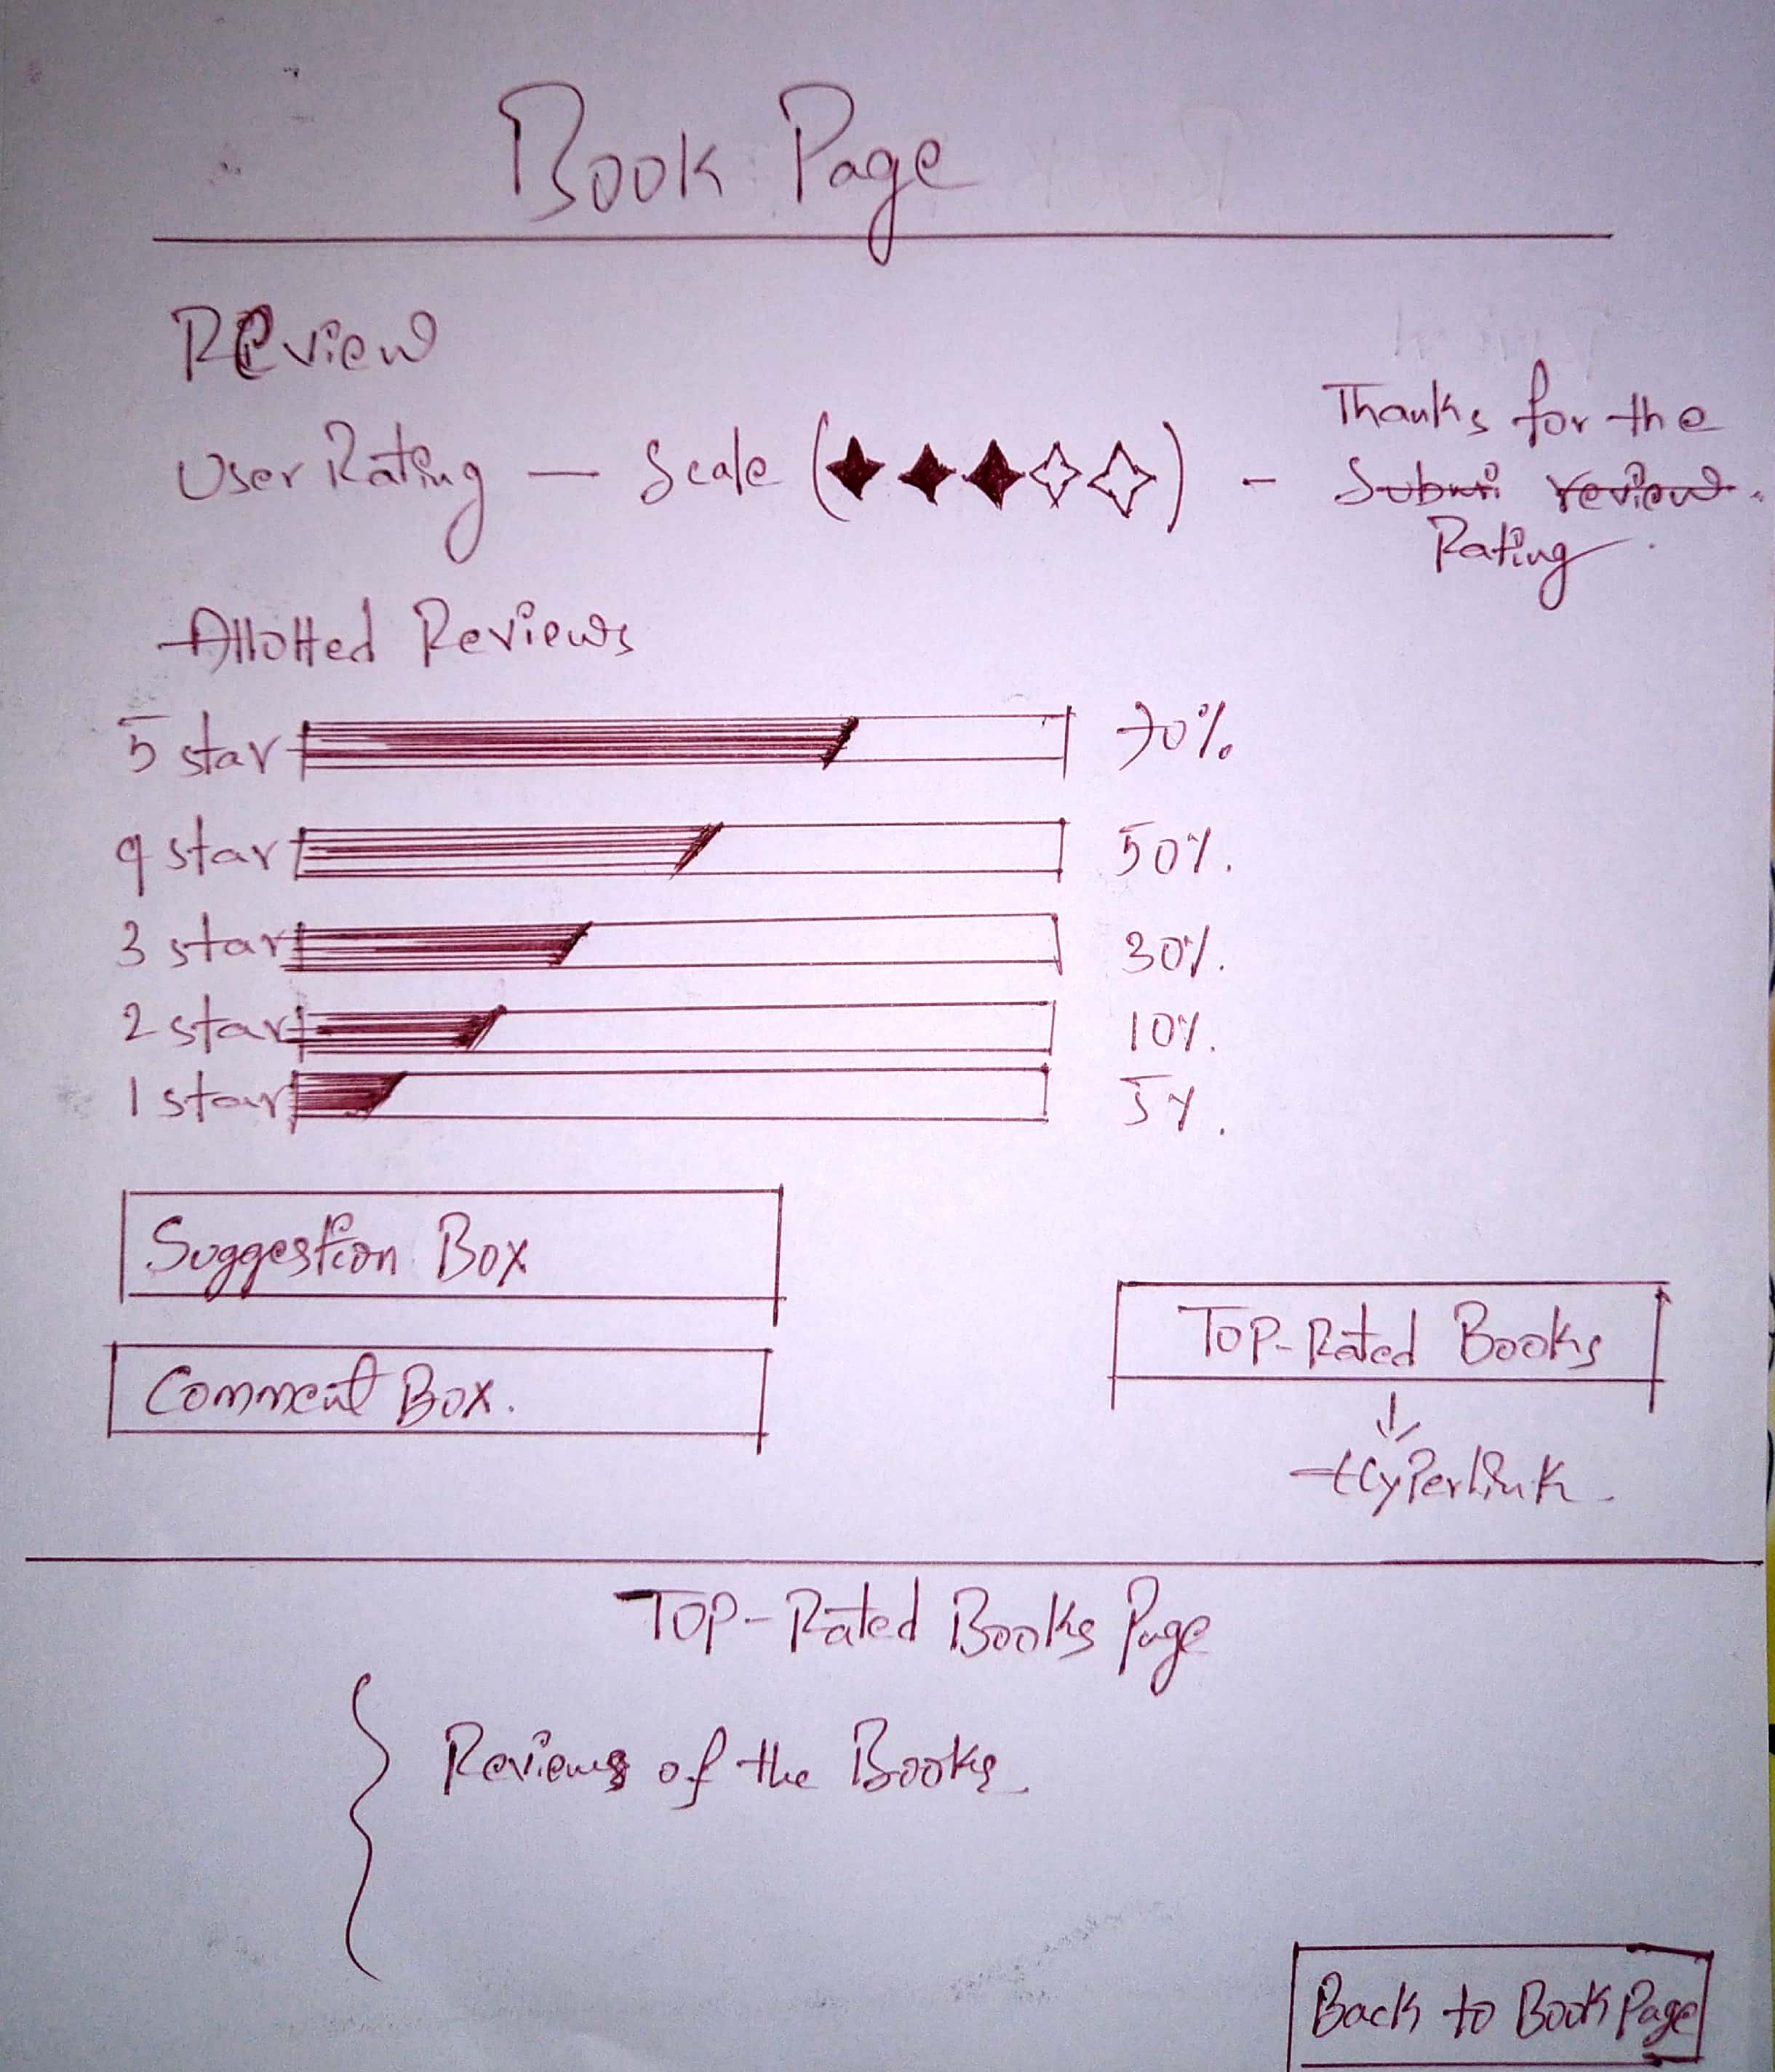 Book Page
Review
User Rating — Scale ( ) - Thanks for the
Submi review.
Rating.
Allotted Reviews
5 star 70%
4 star 50%.
3 star 30%.
2 star 10%.
1 star 5%.
Suggestion Box
Comment Box.
TOP-Rated Books
Hyperlink.
TOP-Rated Books Page
Reviews of the Books.
Back to Book Page